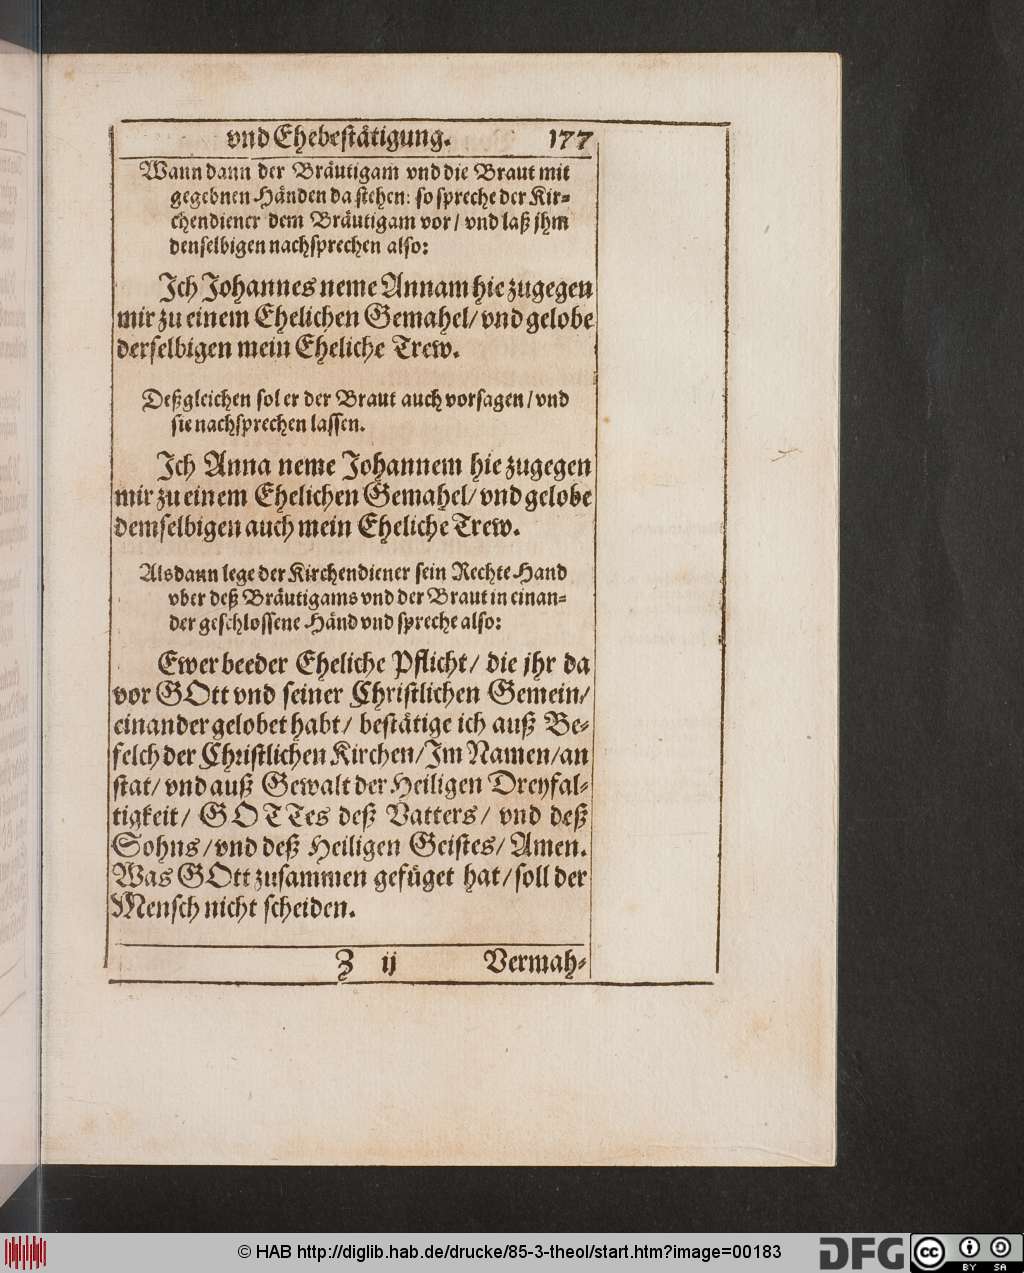 vnd Ehebestätigung. 177
Wann dann der Bräutigam vnd die Braut mit
gegebnen Händen da stehen: so spreche der Kir-
chendiener dem Bräutigam vor / vnd laß jhm
denselbigen nachsprechen also:
Ich Johannes neme Annam hie zugegen
mir zu einem Ehelichen Gemahel / vnd gelobe
derselbigen mein Eheliche Trew.
Deßgleichen sol er der Braut auch vorsagen / vnd
sie nachsprechen lassen.
Ich Anna neme Johannem hie zugegen
mir zu einem Ehelichen Gemahel / vnd gelobe
demselbigen auch mein Eheliche Trew.
Alsdann lege der Kirchendiener sein Rechte Hand
vber deß Bräutigams vnd der Braut in einan-
der geschlossene Händ vnd spreche also:
Ewer beeder Eheliche Pflicht / die jhr da
vor GOtt vnd seiner Christlichen Gemein /
einander gelobet habt / bestätige ich auß Be-
felch der Christlichen Kirchen / Im Namen / an
stat / vnd auß Gewalt der Heiligen Dreyfal-
tigkeit / GOTTes deß Vatters / vnd deß
Sohns / vnd deß Heiligen Geistes / Amen.
Was GOtt zusammen gefüget hat / soll der
Mensch nicht scheiden.
Z ij Vermah-
© HAB http://diglib.hab.de/drucke/85-3-theol/start.htm?image=00183
DFG
cc BY SA